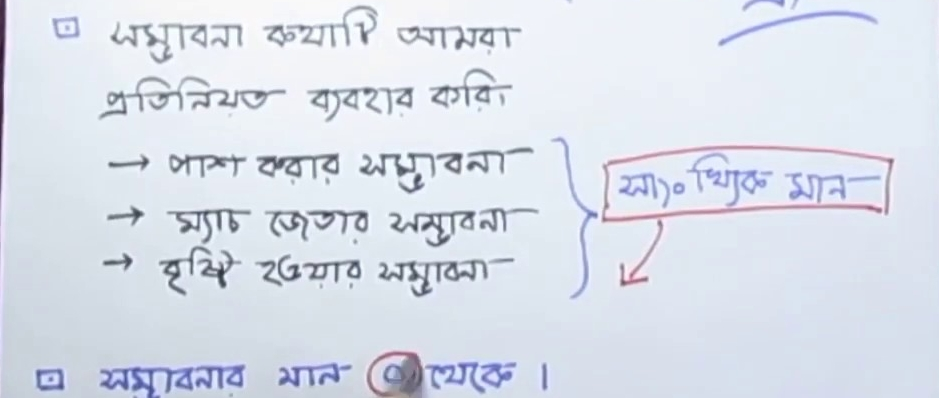 সম্ভাবনা কথাটি আমরা
প্রতিনিয়ত ব্যবহার করি।
→ পাশ করার সম্ভাবনা
→ ম্যাচ জেতার সম্ভাবনা
→ বৃষ্টি হওয়ার সম্ভাবনা
সাংখ্যিক মান
সম্ভাবনার মান ০ থেকে ১